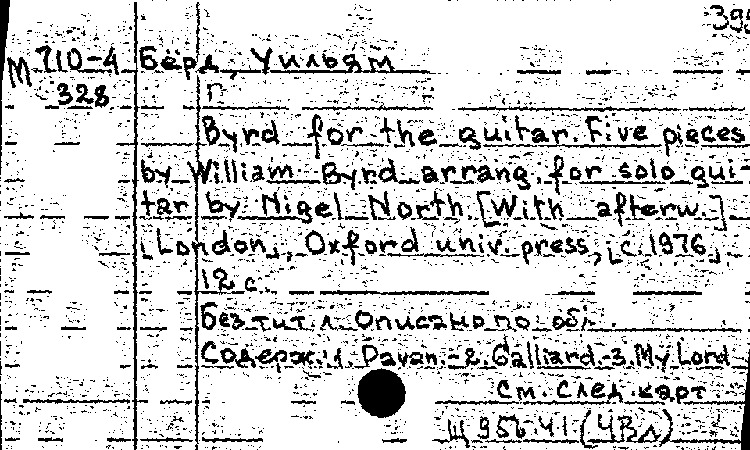 395
М 710-4 Бёрд, Уильям
328 Г
Byrd for the guitar. Five pieces
by William Byrd arrang. for solo gui-
tar by Nigel North. [With afterw.]
[London], Oxford univ. press, [c. 1976].
12 с.
Без тит. л. Описано по обл.
Содерж.: 1. Pavan.-2. Galliard.-3. My Lord
См. след. карт.
Щ 956.41 (4Вл)